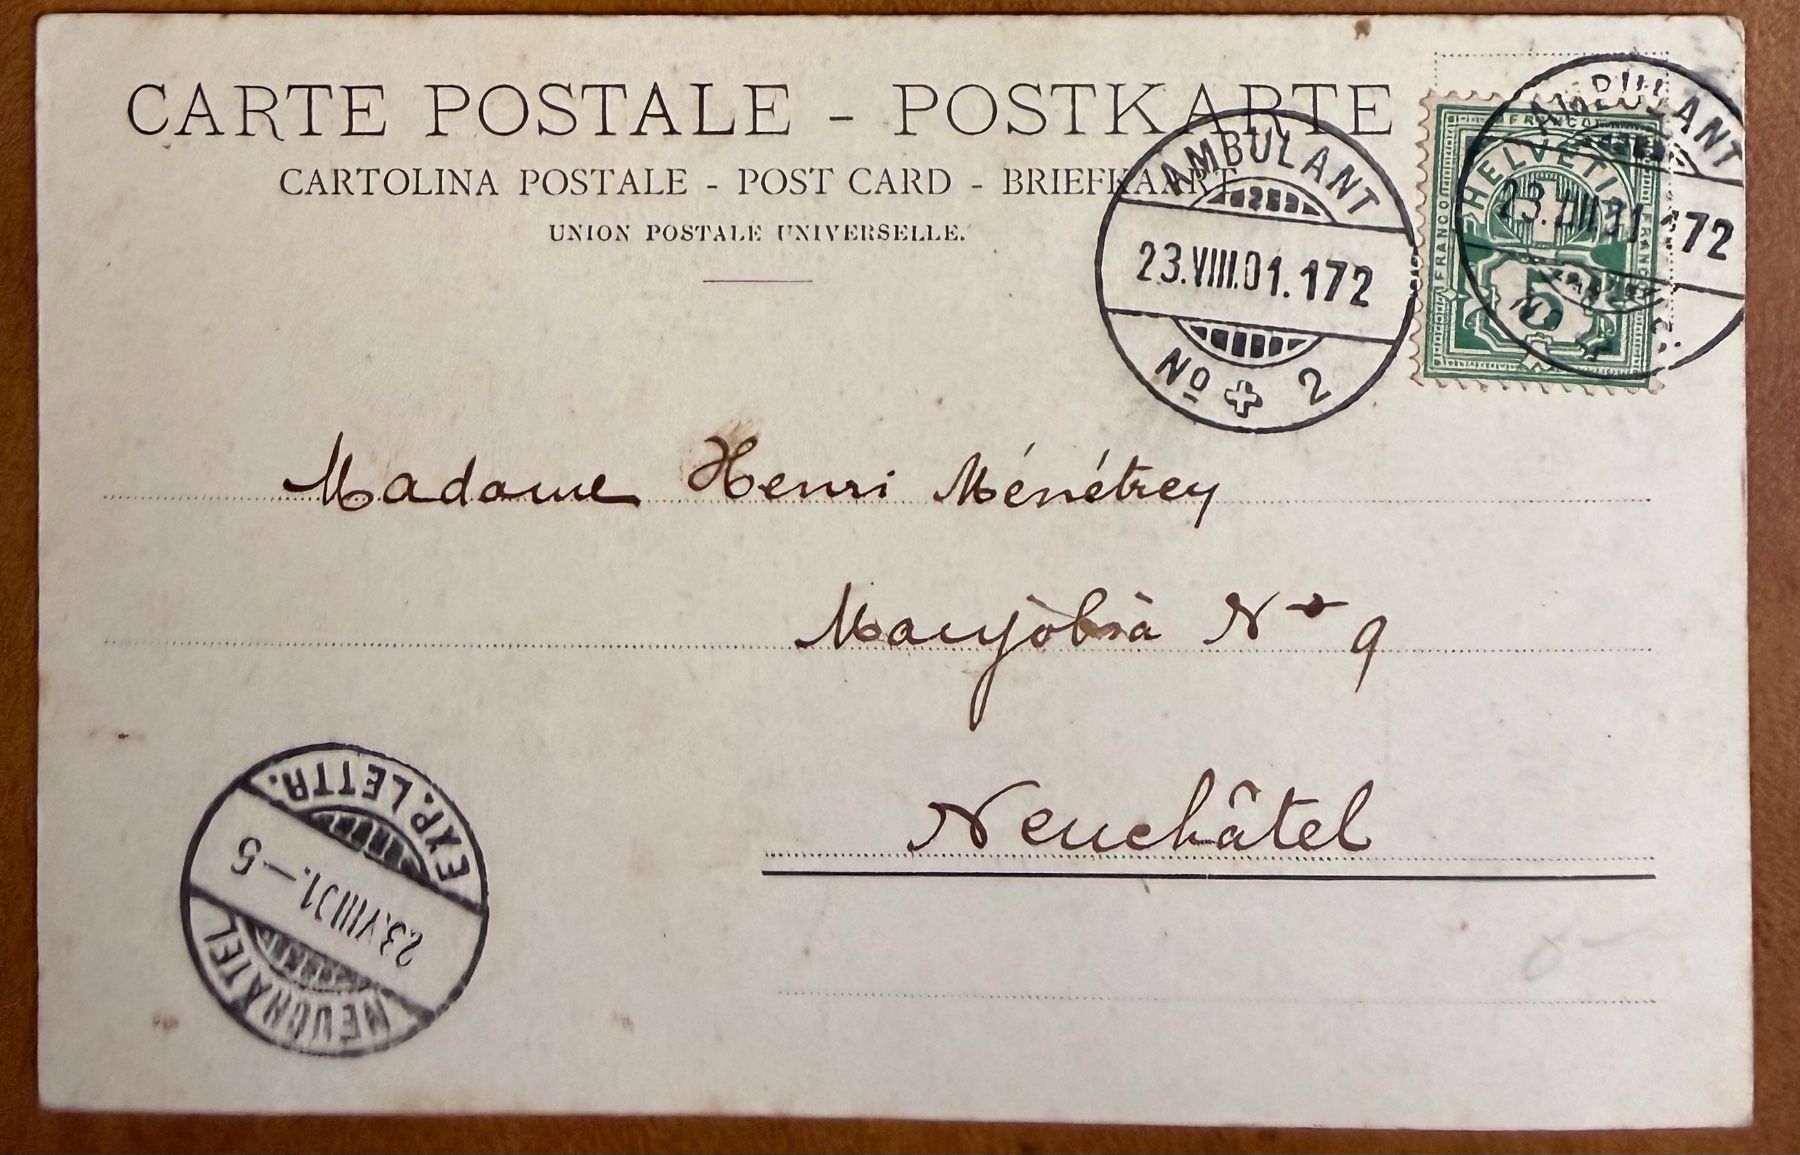 CARTE POSTALE - POSTKARTE
CARTOLINA POSTALE - POST CARD - BRIEFKAART
UNION POSTALE UNIVERSELLE.
AMBULANT
23.VIII.01.172
No 2
AMBULANT
23.VIII.01.172
No 2
FRANCO
HELVETIA
FRANCO
FRANCO
5
Madame Henri Ménétrey
No 9
Neuchâtel
EXP. LETTR.
23.VIII.01.—5
NEUCHATEL